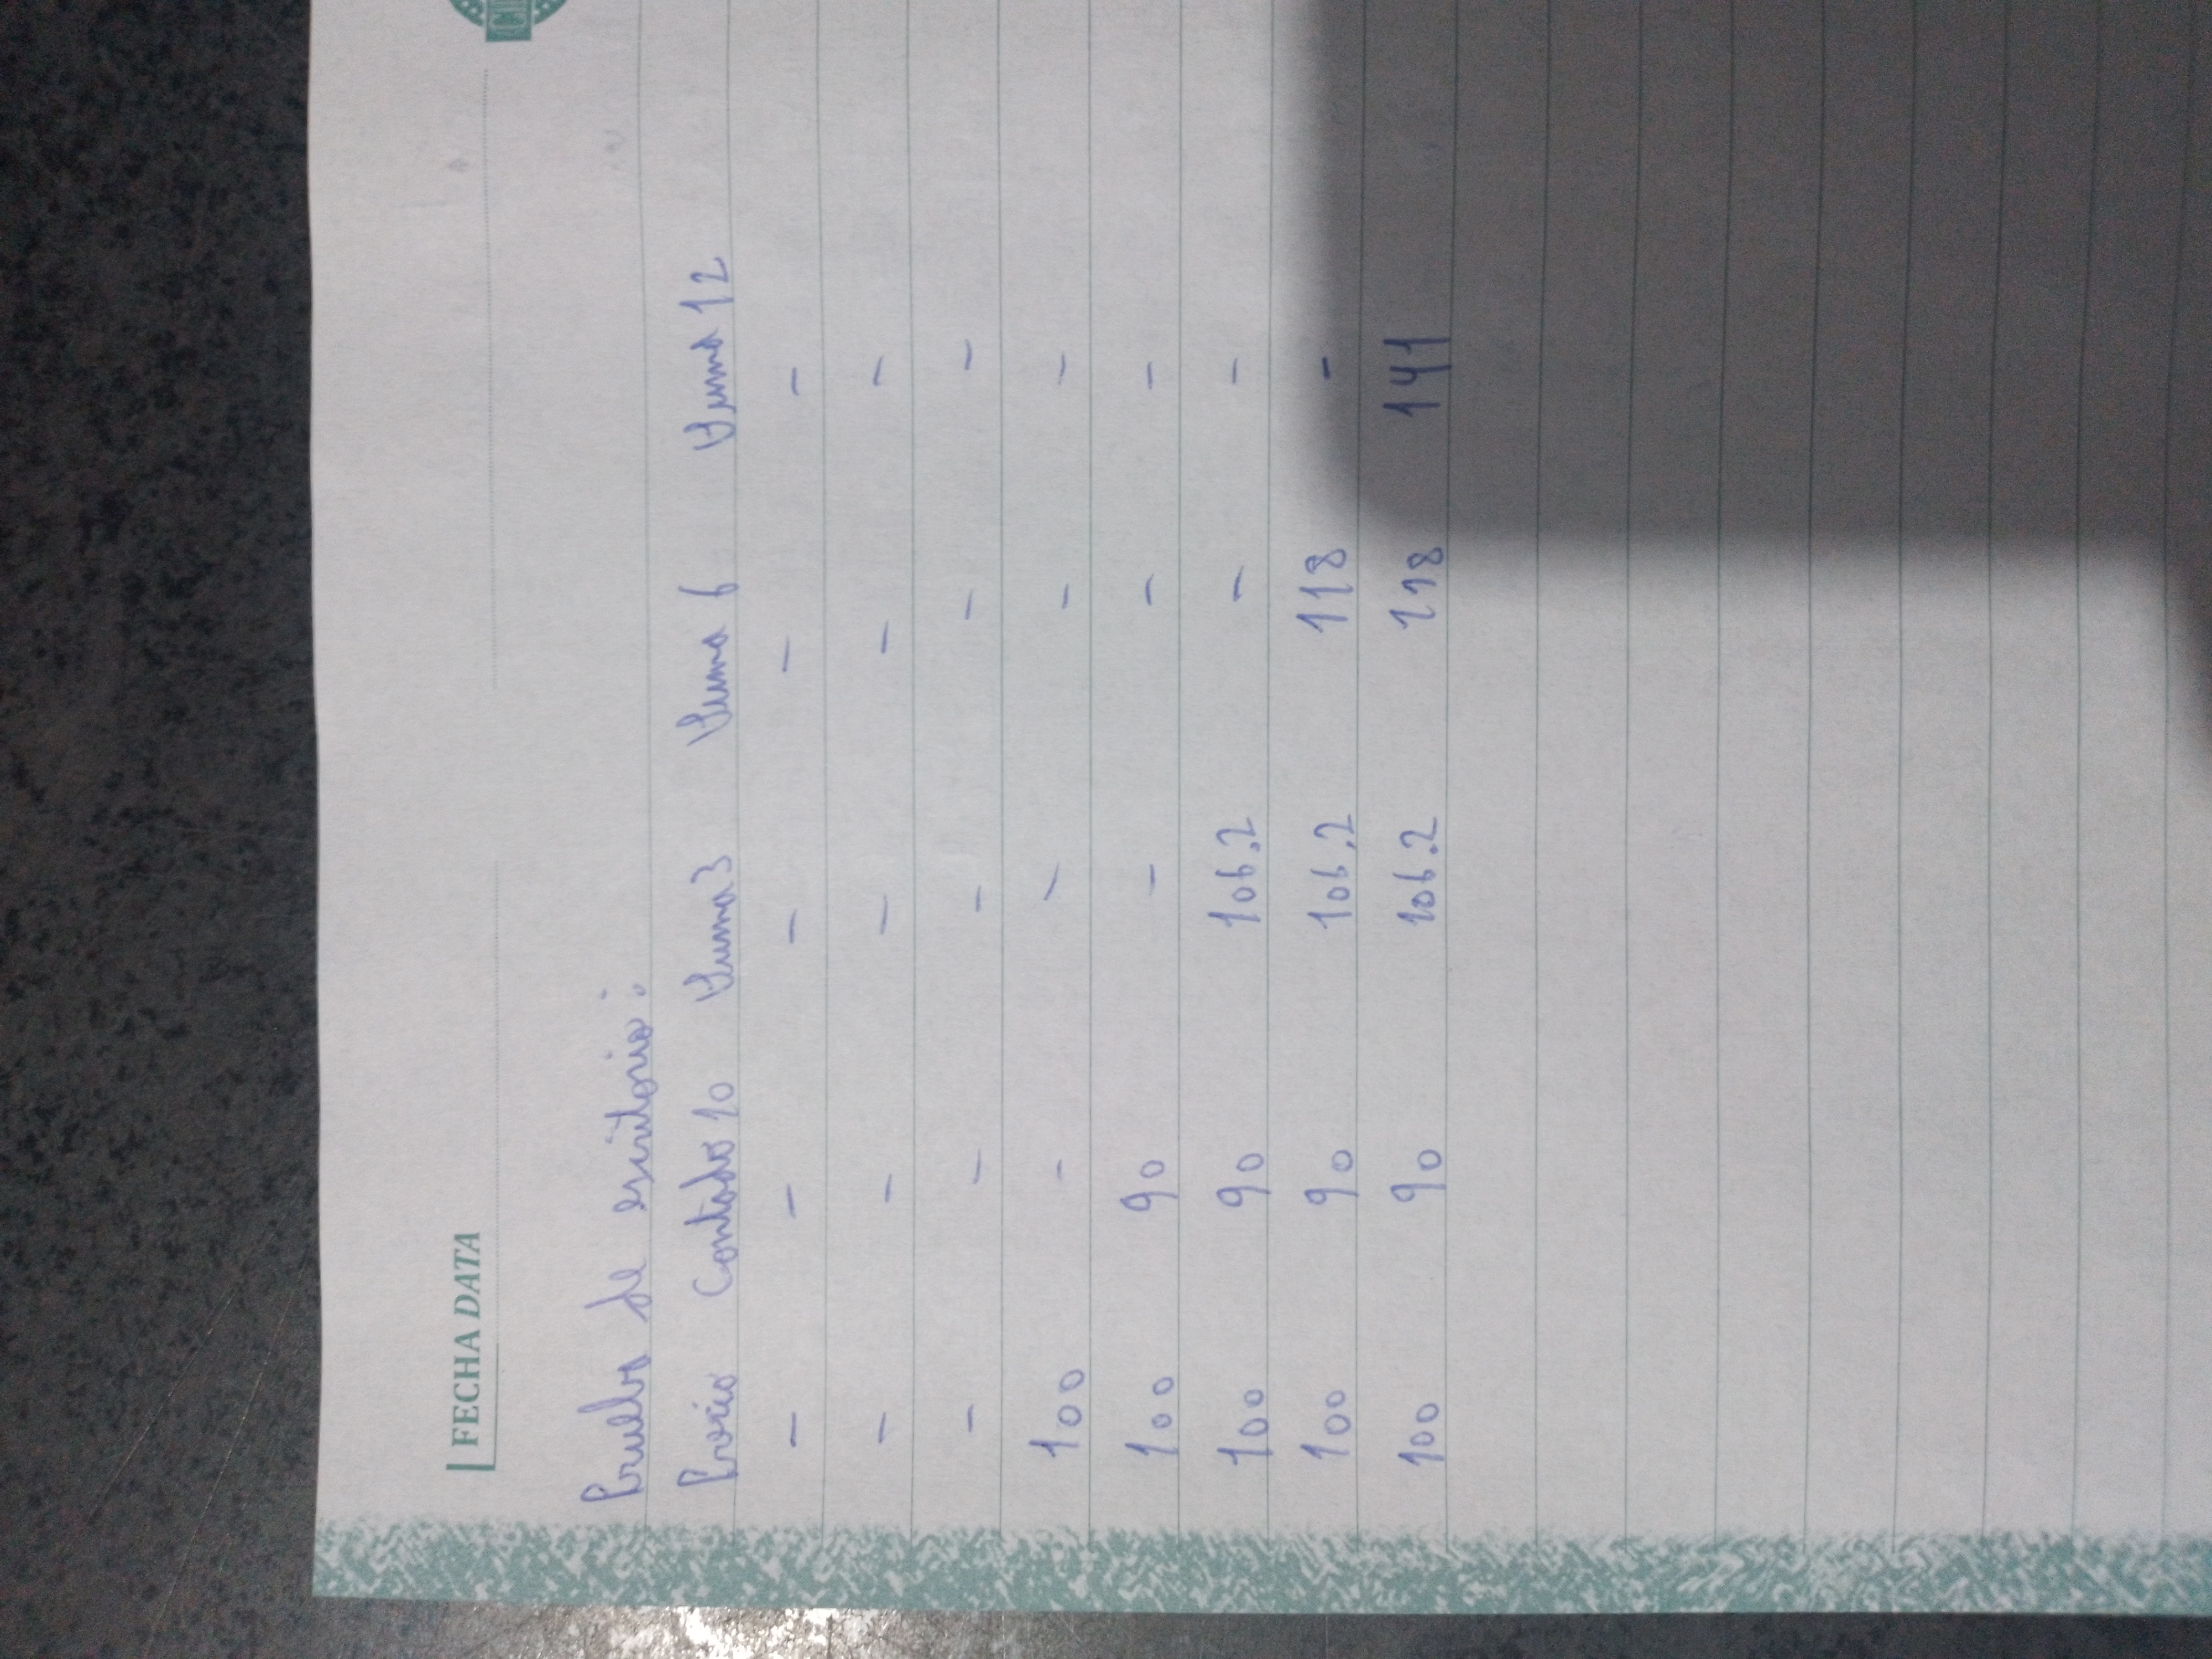 FECHA DATA
Prueba de escritorio:
Precio Contado 10 Suma 3 Suma 6 Suma 12
- - - - -
- - - - -
- - - - -
100 - - - -
100 90 - - -
100 90 106.2 - -
100 90 106.2 118 -
100 90 106.2 118 141